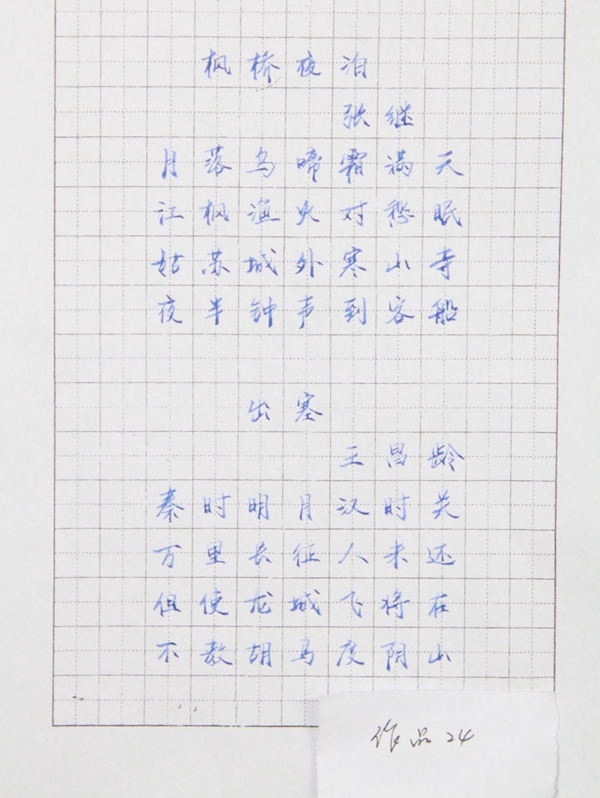 枫桥夜泊
张继
月落乌啼霜满天
江枫渔火对愁眠
姑苏城外寒山寺
夜半钟声到客船
出塞
王昌龄
秦时明月汉时关
万里长征人未还
但使龙城飞将在
不教胡马度阴山
作品24